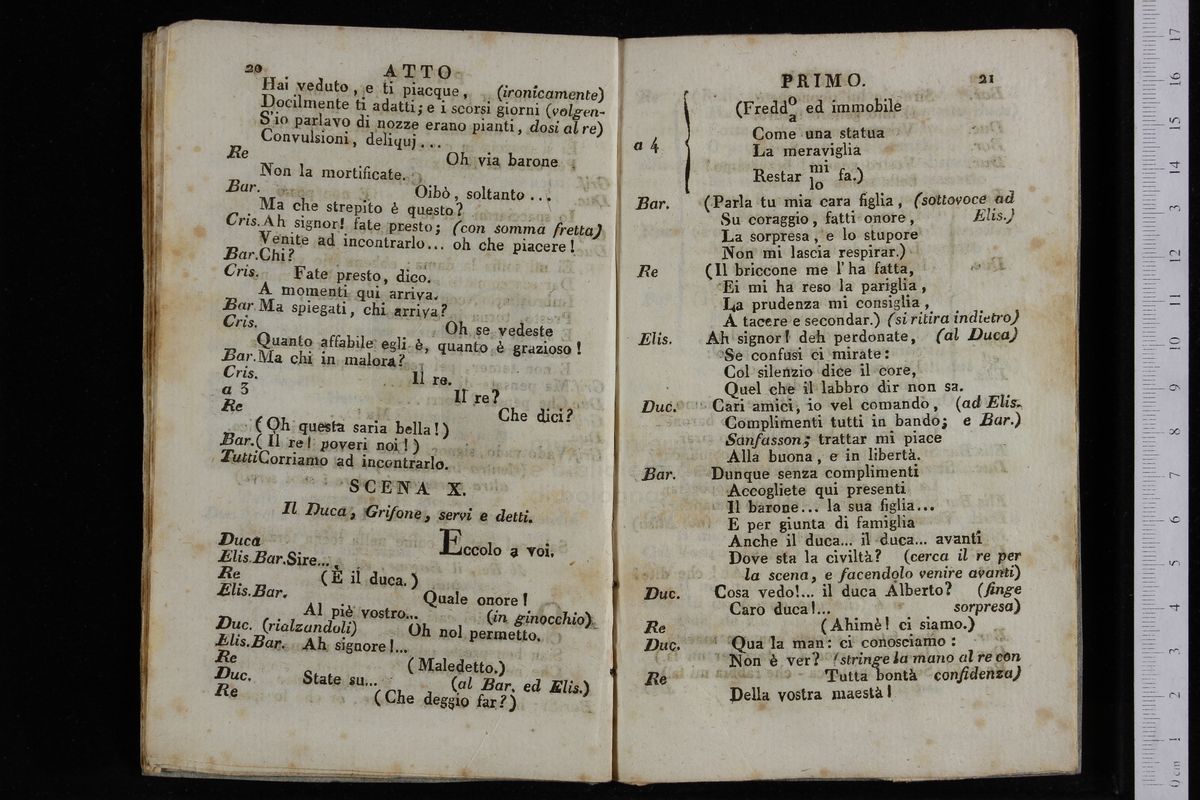 20 ATTO
Hai veduto, e ti piacque, (ironicamente)
Docilmente ti adatti; e i scorsi giorni (volgen-
S'io parlavo di nozze erano pianti, dosi al re)
Convulsioni, deliquj...
Re Oh via barone
Non la mortificate.
Bar. Oibò, soltanto...
Ma che strepito è questo?
Cris. Ah signor! fate presto; (con somma fretta)
Venite ad incontrarlo... oh che piacere!
Bar. Chi?
Cris. Fate presto, dico.
A momenti qui arriva.
Bar Ma spiegati, chi arriva?
Cris. Oh se vedeste
Quanto affabile egli è, quanto è grazioso!
Bar. Ma chi in malora?
Cris. Il re.
a 3 Il re?
Re Che dici?
(Oh questa saria bella!)
Bar. (Il re! poveri noi!)
Tutti Corriamo ad incontrarlo.
SCENA X.
Il Duca, Grifone, servi e detti.
Duca Eccolo a voi.
Elis. Bar. Sire...
Re (È il duca.)
Elis. Bar. Quale onore!
Al piè vostro... (in ginocchio)
Duc. (rialzandoli) Oh nol permetto.
Elis. Bar. Ah signore!...
Re (Maledetto.)
Duc. State su... (al Bar. ed Elis.)
Re (Che deggio far?)
PRIMO. 21
a 4 (Freddo/a ed immobile
Come una statua
La meraviglia
Restar mi/lo fa.)
Bar. (Parla tu mia cara figlia, (sottovoce ad
Su coraggio, fatti onore, Elis.)
La sorpresa, e lo stupore
Non mi lascia respirar.)
Re (Il briccone me l'ha fatta,
Ei mi ha reso la pariglia,
La prudenza mi consiglia,
A tacere e secondar.) (si ritira indietro)
Elis. Ah signor! deh perdonate, (al Duca)
Se confusi ci mirate:
Col silenzio dice il core,
Quel che il labbro dir non sa.
Duc. Cari amici, io vel comando, (ad Elis.
Complimenti tutti in bando; e Bar.)
Sanfasson; trattar mi piace
Alla buona, e in libertà.
Bar. Dunque senza complimenti
Accogliete qui presenti
Il barone... la sua figlia...
E per giunta di famiglia
Anche il duca... il duca... avanti
Dove sta la civiltà? (cerca il re per
la scena, e facendolo venire avanti)
Duc. Cosa vedo!... il duca Alberto? (finge
Caro duca!... sorpresa)
Re (Ahimè! ci siamo.)
Duc. Qua la man: ci conosciamo:
Non è ver? (stringe la mano al re con
Re Tutta bontà confidenza)
Della vostra maestà!